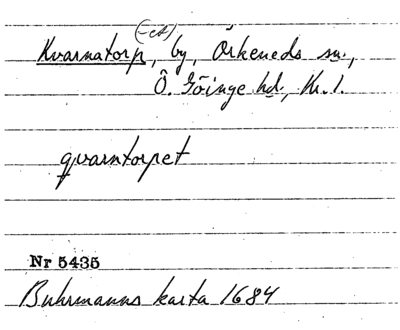 (-et)
Kvarnatorp, by, Örkeneds sn.,
Ö. Göinge hd., Kr. l.
qvarntorpet
Nr 5435
Buhrmanns karta 1684